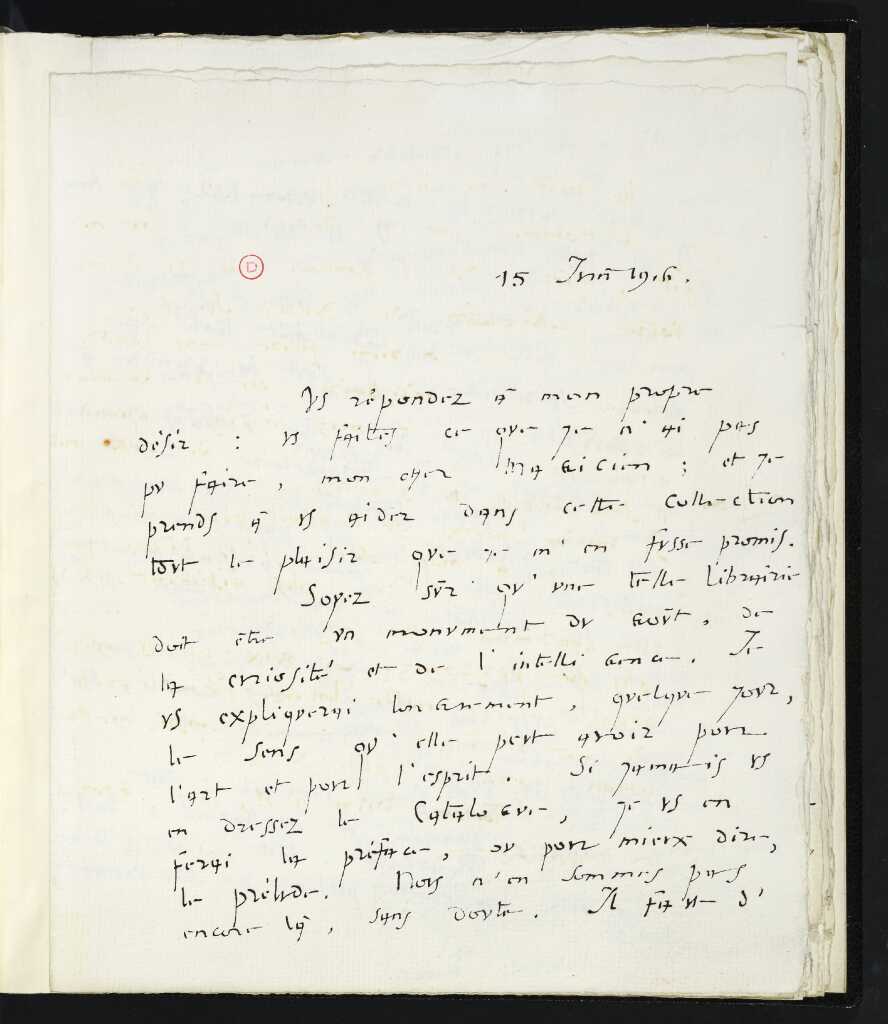 D
15 Juin 1916.
Vs répondez à mon propre
désir : vs faites ce que je n'ai pas
pu faire, mon cher Magicien ; et je
prends à vs aider dans cette collection
tout le plaisir que je m'en fusse promis.
Soyez sûr qu'une telle librairie
doit être un monument du goût, de
la curiosité et de l'intelligence. Je
vs expliquerai longuement, quelque jour,
le sens qu'elle peut avoir pour
l'art et pour l'esprit. Si jamais vs
en dressez le Catalogue, je vs en
ferai la préface, ou pour mieux dire,
le prélude. Nous n'en sommes pas
encore là, sans doute. Il faut d'